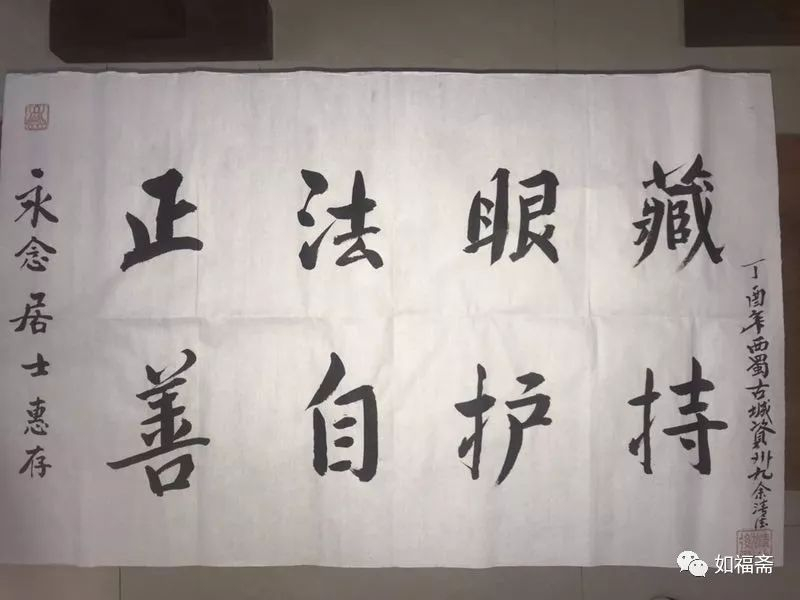 永念居士惠存
正法眼藏
善自护持
丁酉年西蜀古城資州九余清法
如福斋